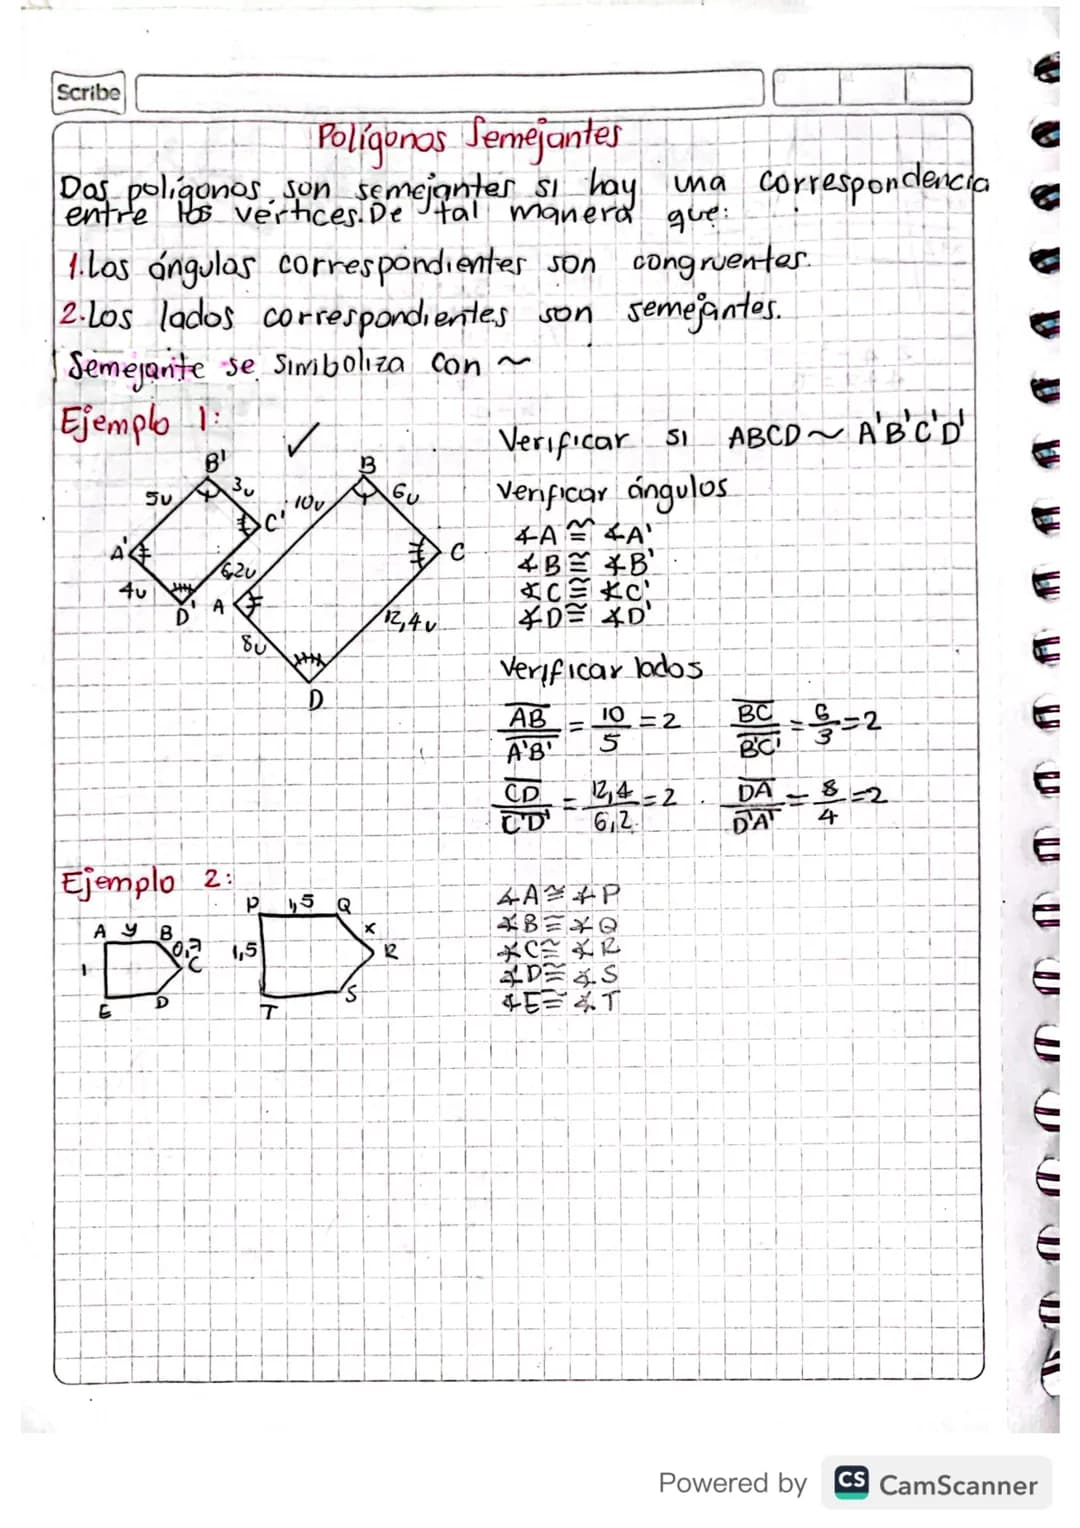 Scribe
Polígonos Semejantes
Dos polígonos son semejantes si hay una correspondencia
entre los vertices. De tal manera que:
1. Los ángulos correspondientes son congruentes.
2. Los lados correspondientes son semejantes.
Semejante se simboliza con ~
Ejemplo 1: ✓
Verificar si ABCD ~ A'B'C'D'
B' B
5u 3u 10u 6u
A' C' C
4u 6,2u
D' A 12,4u
8u
D
Verificar ángulos
∡A ≅ ∡A'
∡B ≅ ∡B'
∡C ≅ ∡C'
∡D ≅ ∡D'
Verificar lados
AB/A'B' = 10/5 = 2 BC/B'C' = 6/3 = 2
CD/C'D' = 12,4/6,2 = 2 . DA/D'A' = 8/4 = 2
Ejemplo 2:
P 1,5 Q
A y B x
0,7 1,5 R
1 C
E D T S
∡A ≅ ∡P
∡B ≅ ∡Q
∡C ≅ ∡R
∡D ≅ ∡S
∡E ≅ ∡T
Powered by CS CamScanner